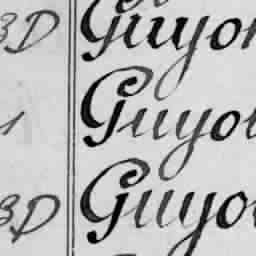 3D Guyo
Guyo
3D Guyo